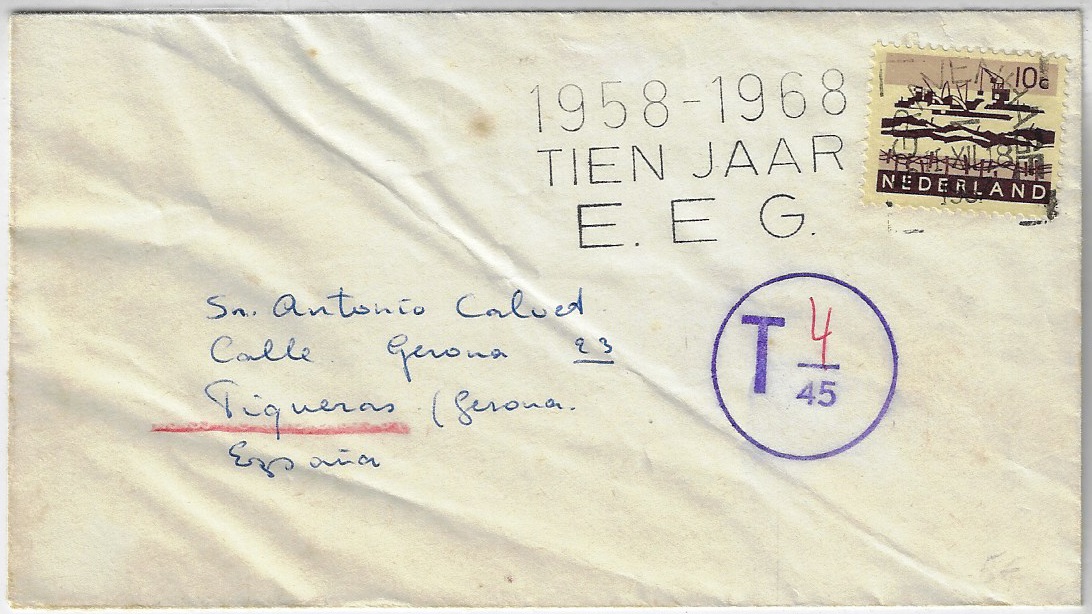 1958-1968
TIEN JAAR
E. E G.
10c
NEDERLAND
T 4
45
Sr. Antonio Calvet
Calle Gerona 23
Figueras (Gerona.
España